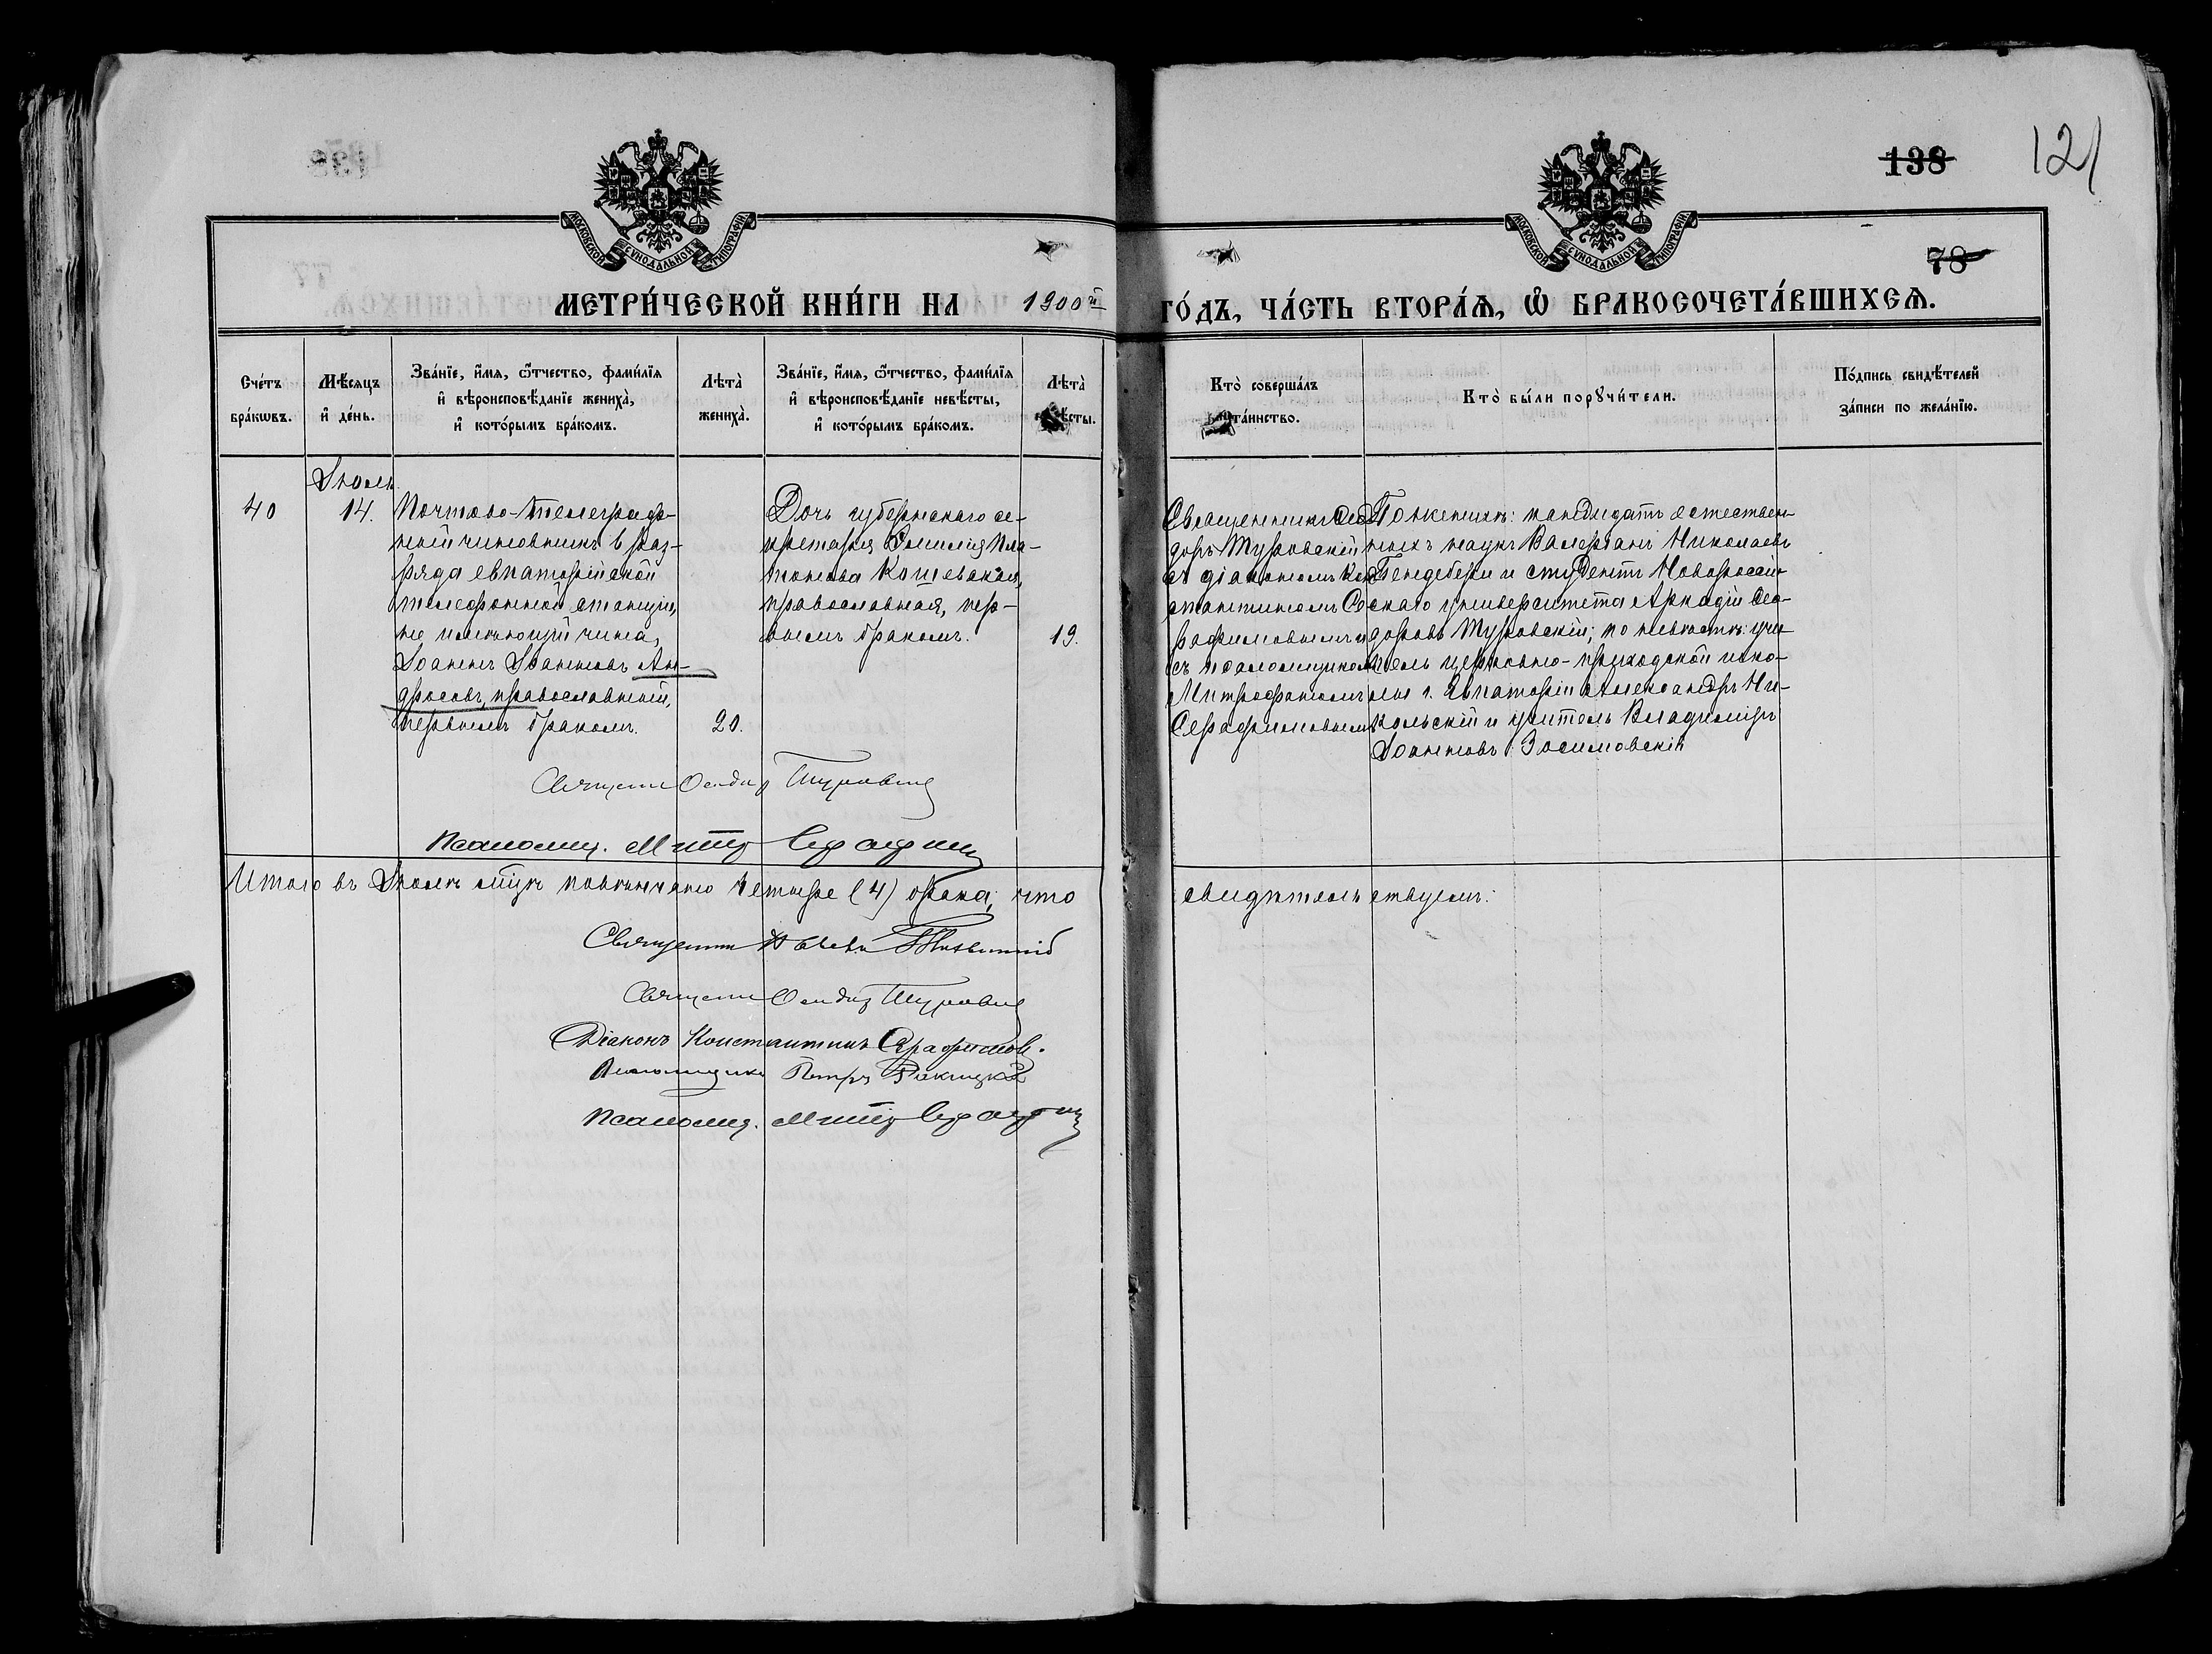 138
121
МОСКОВСКОЙ СѴНОДАЛЬНОЙ ТИПОГРАФІИ
МОСКОВСКОЙ СѴНОДАЛЬНОЙ ТИПОГРАФІИ
78
МЕТРИ́ЧЕСКОЙ КНИ́ГИ НА 1900й ГО́ДЪ, ЧА́СТЬ ВТОРА́Я, Ѽ БРАКОСОЧЕТА́ВШИХСѦ.
Сче́тъ бра́кѡвъ.
Мѣ́сяцъ и҆ де́нь.
Зва́нїе, и҆́мя, ѻ҆́тчество, фами́лїя
и҆ вѣроисповѣ́данїе жениха̀,
и҆ кото́рымъ бра́комъ.
Лѣта̀ жениха̀.
Зва́нїе, и҆́мя, ѻ҆́тчество, фами́лїя
и҆ вѣроисповѣ́данїе невѣ́сты,
и҆ кото́рымъ бра́комъ.
Лѣта̀ невѣ́сты.
Кто̀ соверша́лъ
та́инство.
Кто̀ бы́ли порꙋчи́тели.
По́дпись свидѣ́телей
за́писи по жела́нїю.
40
Іюль
14.
Почтово-телеграф-
ный чиновникъ 6 раз-
ряда евпаторійской
телефонной станціи,
не имѣющій чина,
Іоаннъ Іоанновъ Ан-
дросовъ, православный,
первымъ бракомъ.
20.
Дочь губернскаго се-
кретаря Емилія Пла-
тонова Кошевская,
православная, пер-
вымъ бракомъ.
19.
Священникъ Ѳео-
доръ Туровскій
съ діакономъ Кон-
стантиномъ Се-
рафимовымъ и
съ псаломщикомъ
Митрофаномъ
Серафимовымъ
По женихѣ: кандидатъ естествен-
ныхъ наукъ Валеріанъ Николаевъ
Бендебери и студентъ Новороссій-
скаго университета Аркадій Ѳео-
доровъ Туровскій; по невѣстѣ: учи-
тель церковно-приходской шко-
лы г. Евпаторіи Александръ Ни-
кольскій и учитель Владиміръ
Іоанновъ Зосимовскій
Священн Ѳеодор Туровскій
Псаломщ. Митр Серафим
Итого въ Іюлѣ мцѣ повѣнчано четыре (4) брака, что свидѣтельствуемъ:
Священн
Священн Ѳеодор Туровскій
Діаконъ Константинъ Серафимов.
Псаломщикъ Петръ
Псаломщ. Митр Серафим